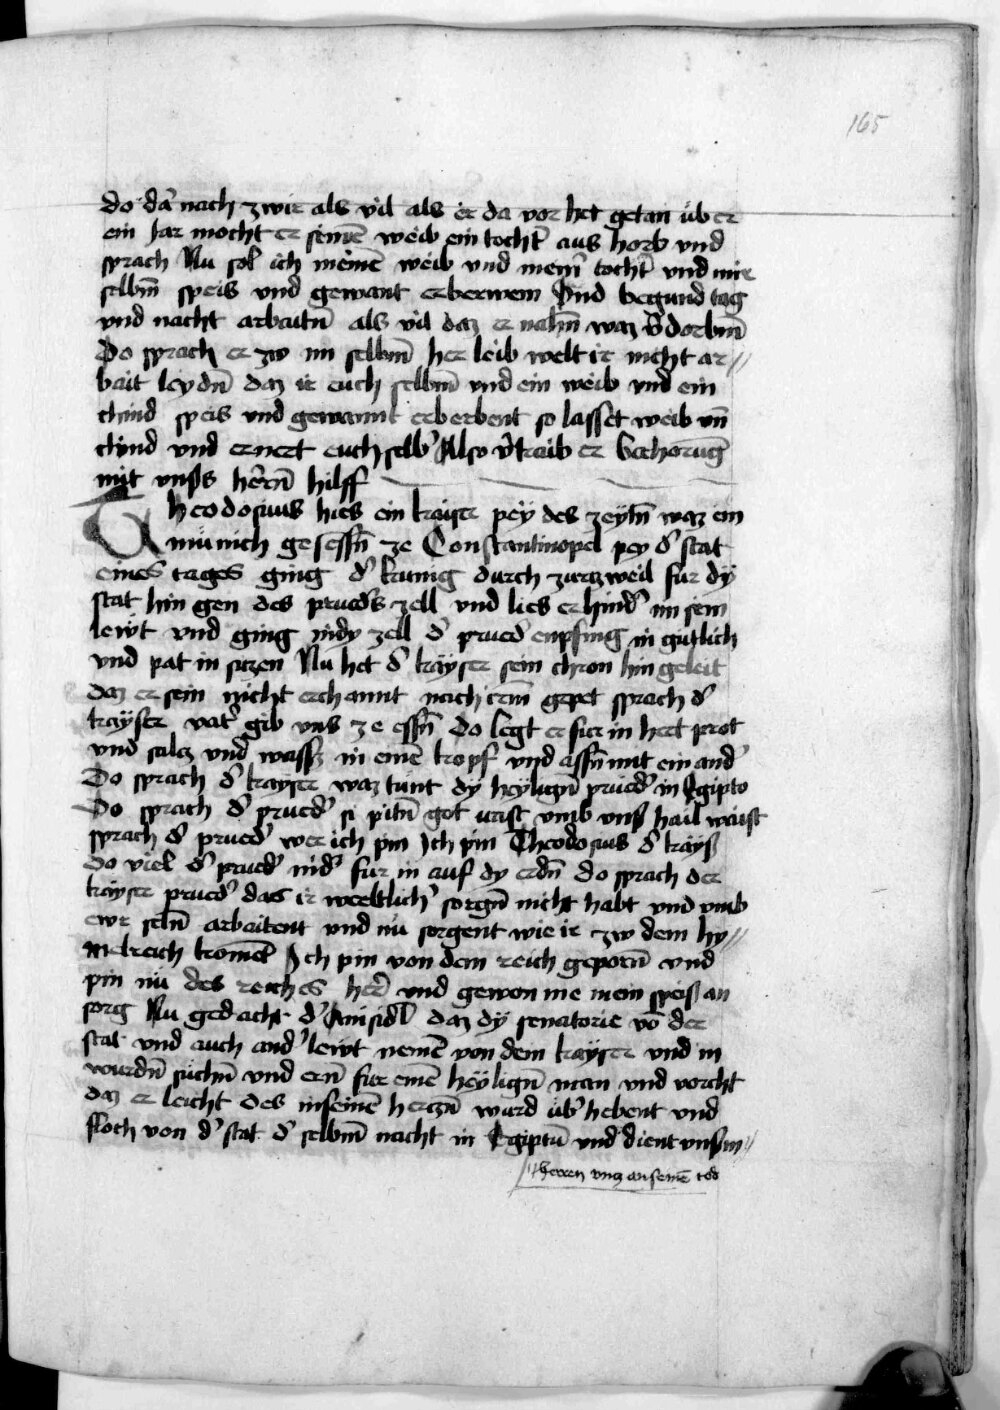 165
do dar nach zwir als vil als er da vor het getan über
ein Jar mocht er seinē weib ein tocht̄ aus horb vnd
sprach Nu sol ich meinē weib vnd meinr̄ tocht̄ vnd mir
selbm̄ speis vnd gewant erberwem Vnd begund tag
vnd nacht arbaitn̄ als vil daz er nahn̄ waz v̄dorbm̄
Do sprach er zw im selbm̄ her leib welt ir nicht ar//
bait leydn̄ daz ir euch selbm̄ vnd ein weib vnd ein
chind speis vnd gewannt erberbent so lasset weib vn̄
chind vnd ernert euch selb' Also v̄traib er bechorūg
mit vnss her̄n̄ hilff
Theodosius hies ein kaiser pey des zeytn̄ waz ein
münich gesessn̄ ze Constantinopel pey d' stat
eines tages ging d' kunig durch zurczweil fur dy
stat hin gen des prueders zell vnd lies er hind' im sein
lewt vnd ging in dy zell d' prued' enpfing in gutlich
vnd pat in siczen Nu het d' kayser sein chron hin geleit
daz er sein nicht erchannt nach irm̄ gepet sprach d'
kayser vat' gib vns ze essn̄ do legt er fur in hert prot
vnd salcz vnd wassz in einē kropf vnd assn̄ mit einand'
Do sprach d' kayser waz tünt dy heylign̄ prüed' in Egipto
Do sprach d' prued' si pitn̄ got vmb vns hail waist
sprach d' prued' wer ich pin Ich pin Theodosius d' kays
do viel d' prued' nid' fur in auf dy erdn̄ do sprach der
kayser prued' das ir weltlich' sorgn̄ nicht habt vnd vmb
ewr seln̄ arbaitent vnd nü sorgent wie ir zw dem hy//
melreich komet Ich pin von dem reich geporn̄ vnd
pin nü des reiches her̄ vnd gewon nie mein speis an
sorg Nu gedacht d' Ainsidl daz dy senatorie vō der
stat vnd auch and' lewt nemē von dem kayser vnd in
wurdn̄ süchn̄ vnd ern̄ fur einē heylign̄ man vnd vorcht
daz er leicht des in seinē herczn̄ würd üb'hebent vnd
floch von d' stat d' selbm̄ nacht in Egiptū vnd dient vnsm//
herren vncz an seinē tod